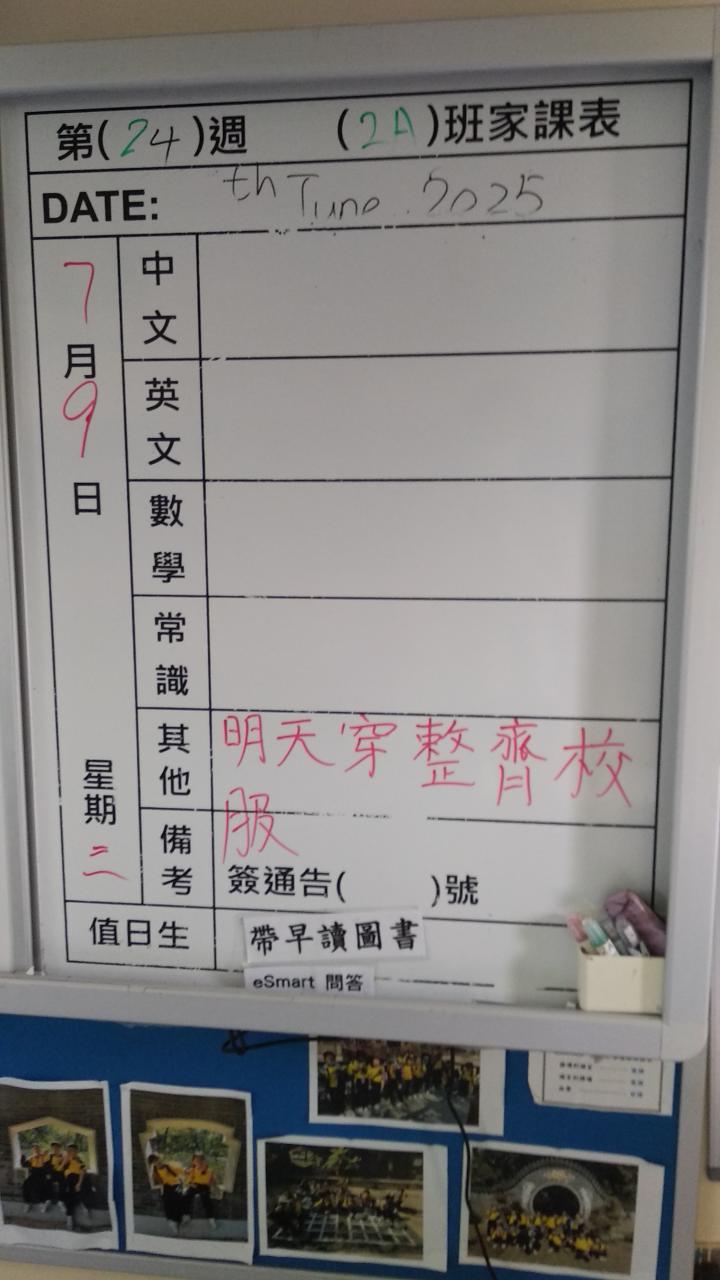 第(24)週 (2A)班家課表
DATE: th June 2025
7月9日
星期三
中文
英文
數學
常識
其他 明天穿整齊校服
備考 簽通告( )號
值日生 帶早讀圖書
eSmart 問答